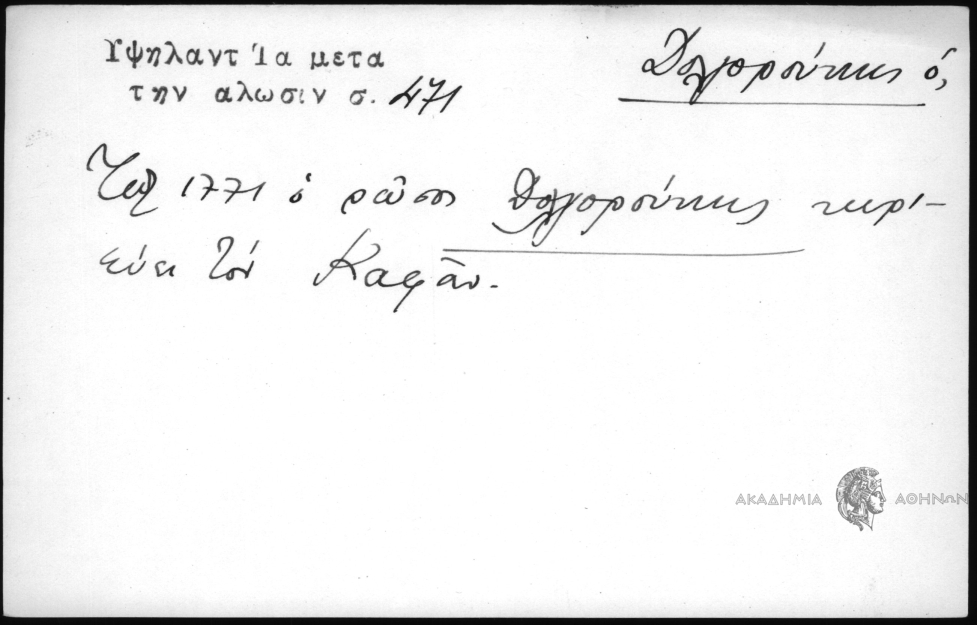 Υψηλαντ Ία μετα
την αλωσιν σ. 471
Δολγορούκης ὁ,
Τῷ 1771 ὁ ρῶσος Δολγορούκης κυρι-
εύει τὸν Καφᾶν.
ΑΚΑΔΗΜΙΑ ΑΘΗΝΩΝ